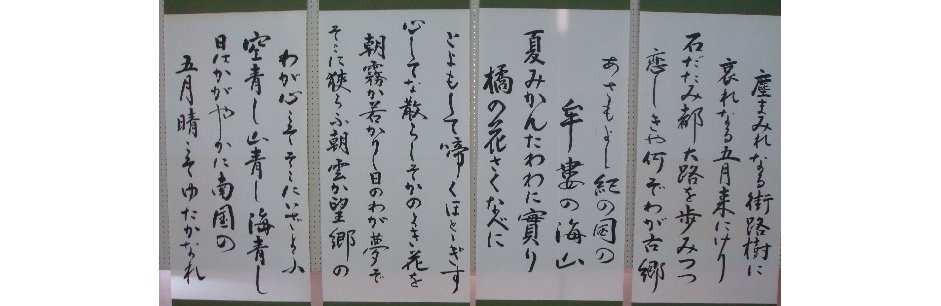 塵まみれなる街路樹に
哀れなる五月来にけり
石だたみ都大路を歩みつつ
恋しきや何ぞわが古郷
あさもよし紀の国の
牟婁の海山
夏みかんたわわに實り
橘の花さくなべに
とよもして啼くほととぎす
心してな散らしそかのよき花を
朝霧か若かりし日のわが夢ぞ
そこに狭らふ朝雲か望郷の
わが心こそそこにいざよふ
空青し山青し海青し
日はかがやかに南国の
五月晴こそゆたかなれ